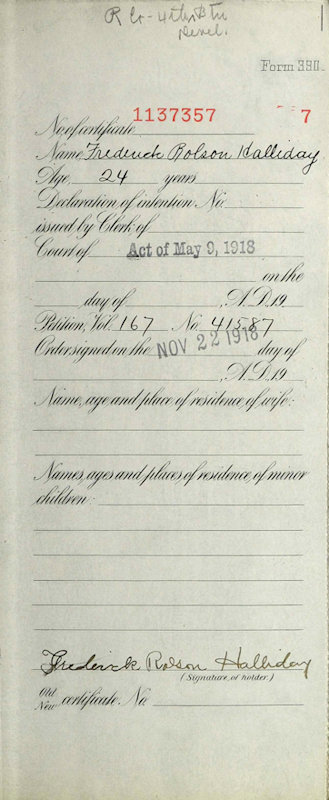 R Co - 4th Bn
Devel.
Form 390.
No. of certificate 1137357 7
Name Frederick Rolson Halliday
Age, 24 years
Declaration of intention No.
issued by Clerk of
Court of Act of May 9, 1918
on the
day of , A.D. 19
Petition, Vol. 167 No. 41587
Order signed on the NOV 22 1918 day of
, A.D. 19
Name, age and place of residence of wife:
Names, ages and places of residence of minor
children:
Frederick Rolson Halliday
(Signature of holder.)
Old
New certificate No.